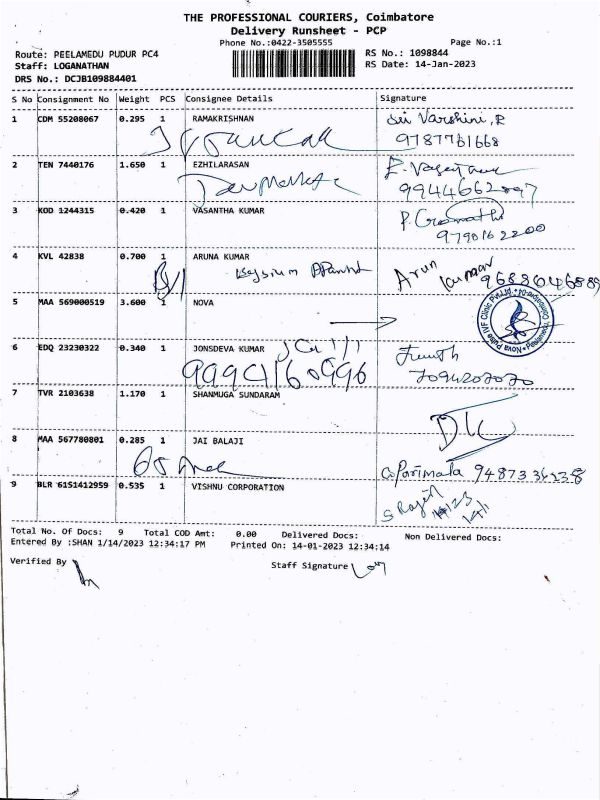 THE PROFESSIONAL COURIERS, Coimbatore
Delivery Runsheet - PCP
Phone No.:0422-3505555
Page No.:1
Route: PEELAMEDU PUDUR PC4
RS No.: 1098844
Staff: LOGANATHAN
RS Date: 14-Jan-2023
DRS No.: DCJB109884401
S No Consignment No Weight PCS Consignee Details Signature
1 CDM 55208067 0.295 1 RAMAKRISHNAN Sri Varshini. R
9787761668
2 TEN 7440176 1.650 1 EZHILARASAN
3 KOD 1244315 0.420 1 VASANTHA KUMAR
9790162200
4 KVL 42838 0.700 1 ARUNA KUMAR Arun kumar
9688046889
5 MAA 569000519 3.600 1 NOVA
6 EDQ 23230322 0.340 1 JONSDEVA KUMAR
7094207070
7 TVR 2103638 1.170 1 SHANMUGA SUNDARAM
8 MAA 567780801 0.285 1 JAI BALAJI
G. Parimala
9 BLR 6151412959 0.535 1 VISHNU CORPORATION
Total No. Of Docs: 9 Total COD Amt: 0.00 Delivered Docs: Non Delivered Docs:
Entered By :SHAN 1/14/2023 12:34:17 PM Printed On: 14-01-2023 12:34:14
Verified By
Staff Signature